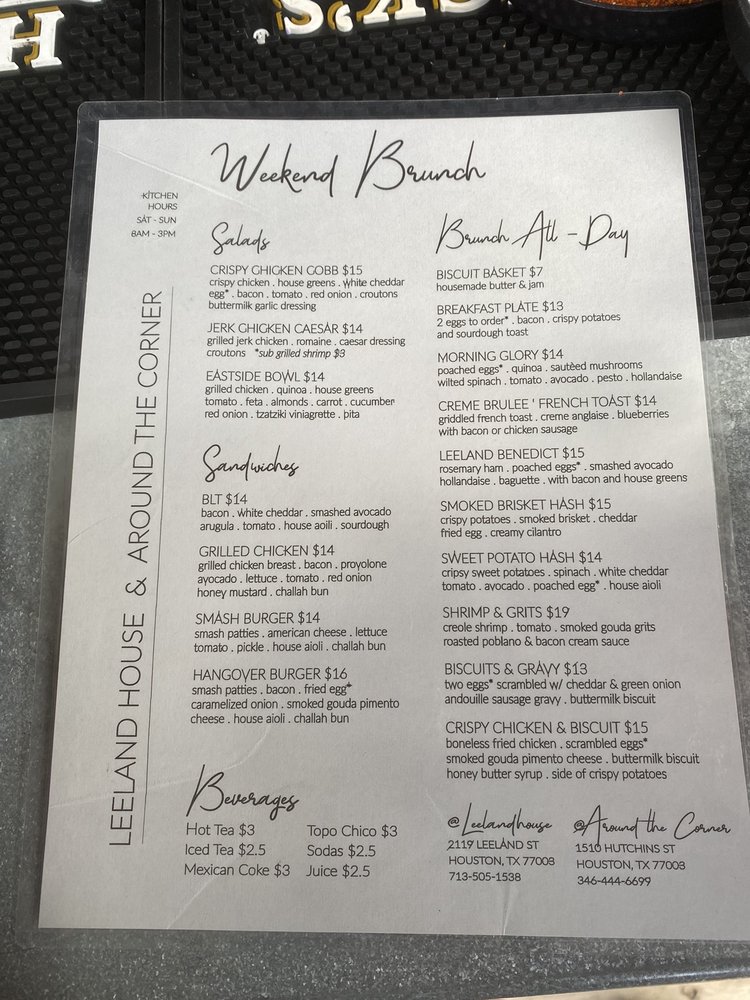 H
K'S.
Weekend Brunch
KITCHEN
HOURS
SAT - SUN
8AM - 3PM
LEELAND HOUSE & AROUND THE CORNER
Salads
CRISPY CHICKEN COBB $15
crispy chicken . house greens . white cheddar
egg* . bacon . tomato . red onion . croutons
buttermilk garlic dressing
JERK CHICKEN CAESAR $14
grilled jerk chicken . romaine . caesar dressing
croutons *sub grilled shrimp $3
EASTSIDE BOWL $14
grilled chicken . quinoa . house greens
tomato . feta . almonds . carrot . cucumber
red onion . tzatziki viniagrette . pita
Sandwiches
BLT $14
bacon . white cheddar . smashed avocado
arugula . tomato . house aoili . sourdough
GRILLED CHICKEN $14
grilled chicken breast . bacon . provolone
avocado . lettuce . tomato . red onion
honey mustard . challah bun
SMASH BURGER $14
smash patties . american cheese . lettuce
tomato . pickle . house aioli . challah bun
HANGOVER BURGER $16
smash patties . bacon . fried egg*
caramelized onion . smoked gouda pimento
cheese . house aioli . challah bun
Beverages
Hot Tea $3
Iced Tea $2.5
Mexican Coke $3
Topo Chico $3
Sodas $2.5
Juice $2.5
Brunch All - Day
BISCUIT BASKET $7
housemade butter & jam
BREAKFAST PLATE $13
2 eggs to order* . bacon . crispy potatoes
and sourdough toast
MORNING GLORY $14
poached eggs* . quinoa . sautèed mushrooms
wilted spinach . tomato . avocado . pesto . hollandaise
CREME BRULEE ' FRENCH TOAST $14
griddled french toast . creme anglaise . blueberries
with bacon or chicken sausage
LEELAND BENEDICT $15
rosemary ham . poached eggs* . smashed avocado
hollandaise . baguette . with bacon and house greens
SMOKED BRISKET HASH $15
crispy potatoes . smoked brisket . cheddar
fried egg . creamy cilantro
SWEET POTATO HASH $14
cripsy sweet potatoes . spinach . white cheddar
tomato . avocado . poached egg* . house aioli
SHRIMP & GRITS $19
creole shrimp . tomato . smoked gouda grits
roasted poblano & bacon cream sauce
BISCUITS & GRAVY $13
two eggs* scrambled w/ cheddar & green onion
andouille sausage gravy . buttermilk biscuit
CRISPY CHICKEN & BISCUIT $15
boneless fried chicken . scrambled eggs*
smoked gouda pimento cheese . buttermilk biscuit
honey butter syrup . side of crispy potatoes
@Leelandhouse
2119 LEELAND ST
HOUSTON, TX 77003
713-505-1538
@Around the Corner
1510 HUTCHINS ST
HOUSTON, TX 77003
346-444-6699